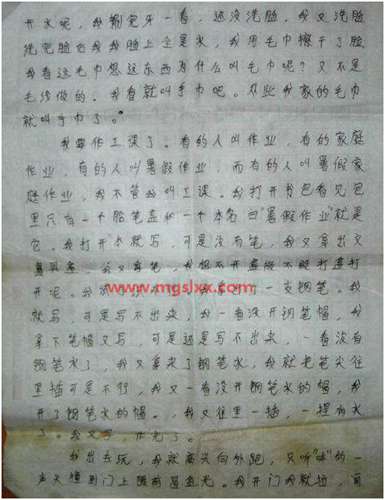 开水呢，我刷完牙一看，还没洗脸，我又洗脸
洗完脸后我脸上全是水，我用毛巾擦干了脸
我看这毛巾想这东西为什么叫毛巾呢？又不是
毛线做的。我看就叫手巾吧。从此我家的毛巾
就叫手巾了。
我要作工课了。有的人叫作业，有的家庭
作业，有的人叫暑假作业，而有的人叫暑假家
庭作业，我不管就叫工课。我打开书包看见包
里只有一个铅笔盒和一个本名曰"暑假作业"就是
它。我打开本就写，可是没有笔，我又拿出文
具盒，我又拿笔，我想不开盒
开呢。我 一支钢笔。我
www.mgslxx.com
就写，可是写不出来，我一看没开钢笔帽，我
拿下笔帽又写，可是还是写不出来，一看没有
钢笔水了，我又拿来了钢笔水，我就把笔尖往
里插可是不行，我又一看没开钢笔水的帽，我
开了钢笔水的帽。，我又往里一插，一捏有水
了。我又写，作完了。
我出去玩，我就高兴向外跑，只听"咚"的一
声人撞到门上眼前 我开门我就跑，前